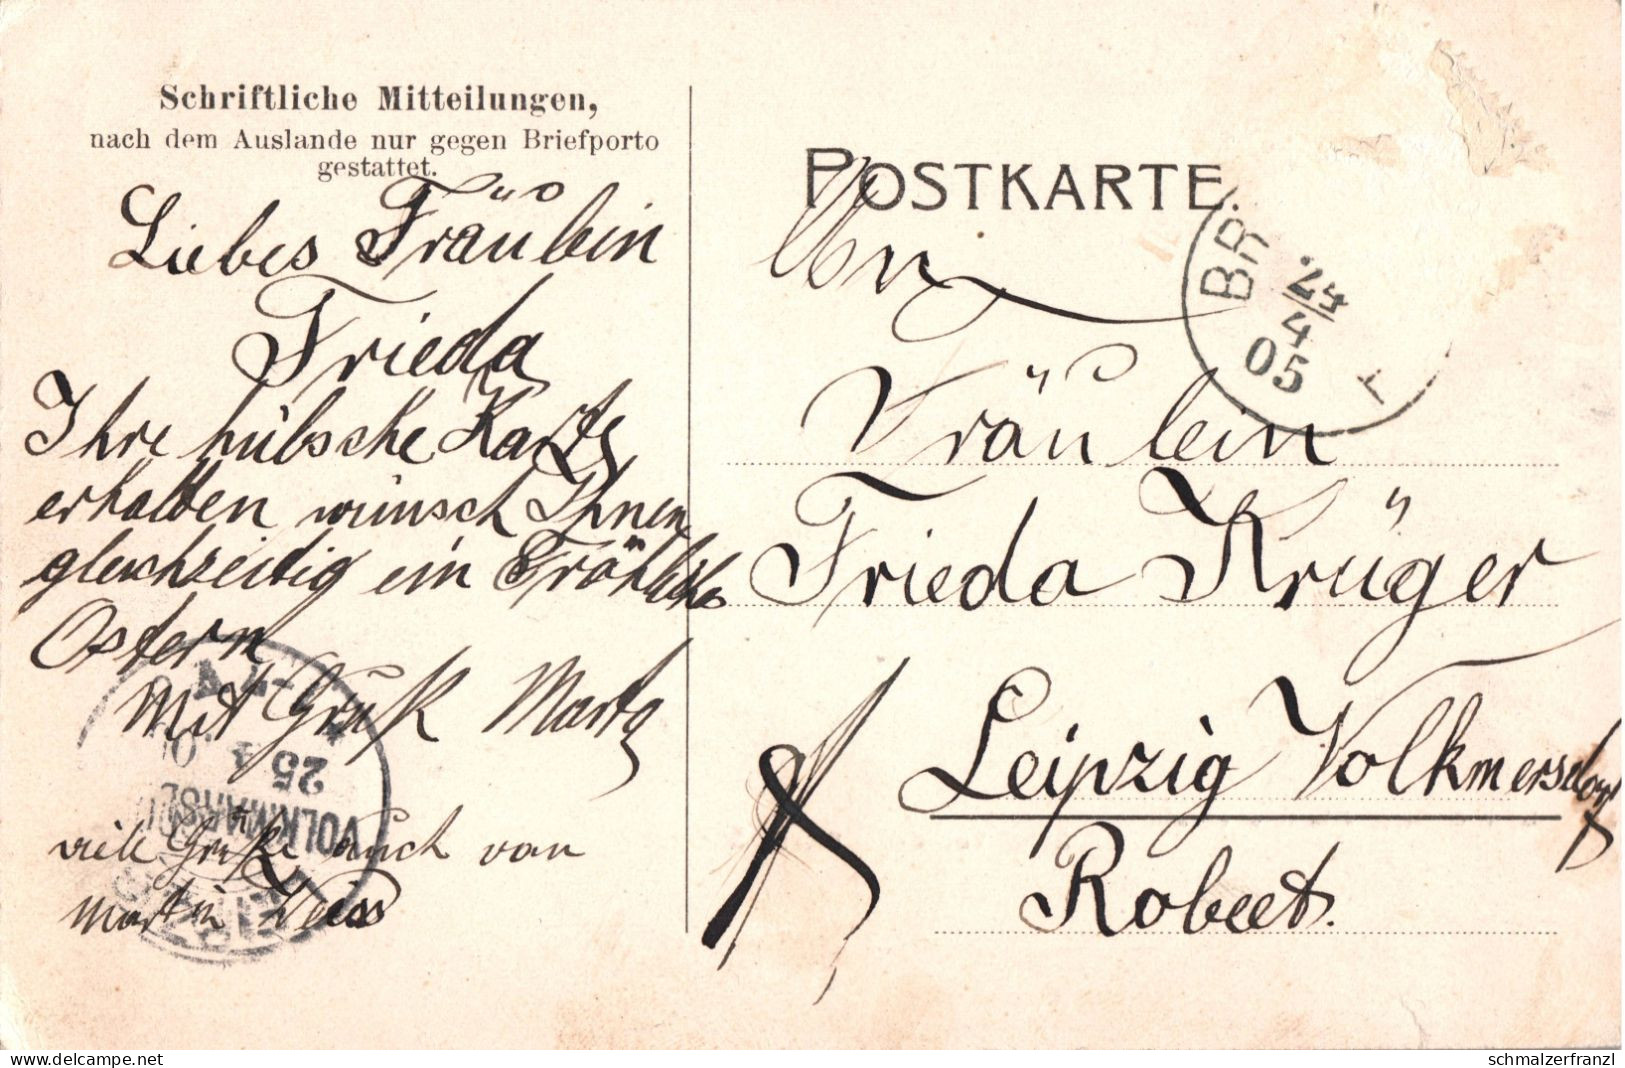 Schriftliche Mitteilungen,
nach dem Auslande nur gegen Briefporto
gestattet.
Liebes Fräulein
Frieda
Ihre hübsche Karte
erhalten wünsch Ihnen
gleichzeitig ein Fröhliche
Ostern
Mit Gruß Marta
viele Grüße auch von
Martin Weiss
POSTKARTE.
BR
24
4
05
An
Fräulein
Frieda Krüger
Leipzig Volkmersdorf
Robert.
25
VOLKMARSD
delcampe.net
schmalzerfranzl